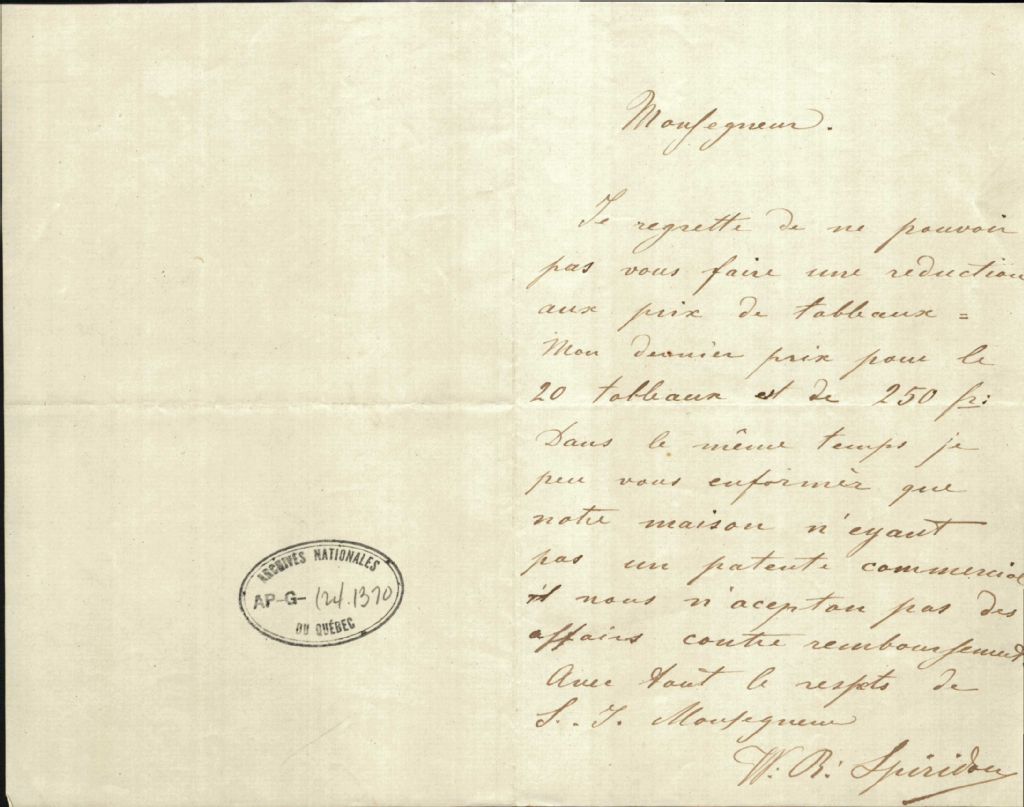 ARCHIVES NATIONALES
AP-G-124.1370
DU QUÉBEC
Monsegneur.
Je regrette de ne pouvoir
pas vous faire une reduction
aux prix de tableaux =
Mon dernier prix pour le
20 tableaux est de 250 fr:
Dans le même temps je
peu vous enformér que
notre maison n'eyant
pas un patente commercial
il nous n'acepton pas des
affairs contre remboursement.
Avec tout le respts de
S. I. Monsegneur
W. B. Spiridon